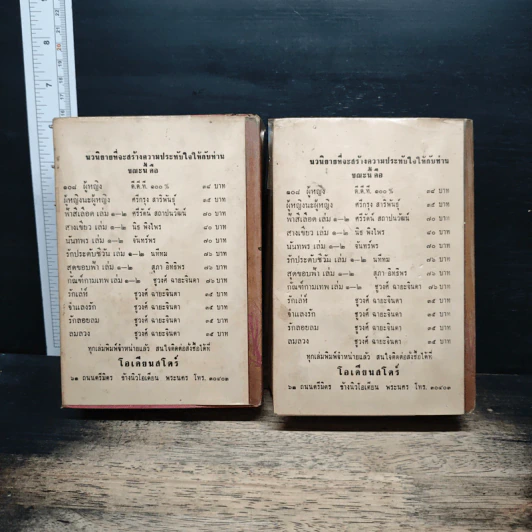 นวนิยายที่จะสร้างความประทับใจให้กับท่าน
ขณะนี้ คือ
๑๐๘ ผู้หญิง ดี.ดี.ที. ๑๐๐ % ๑๕ บาท
ผู้หญิงนะผู้หญิง ศรีกรุง สาริพันธุ์ ๑๕ บาท
ฟ้าสีเลือด เล่ม ๑—๒ ศรีรัตน์ สถาปนวัฒน์ ๗๐ บาท
สางเขียว เล่ม ๑—๒ นิธ พึงไพร ๔๐ บาท
นันทพร เล่ม ๑—๒ จันทร์พร ๗๐ บาท
รักประดับชีวัน เล่ม ๑—๒ นทีทม ๗๐ บาท
สุดขอบฟ้า เล่ม ๑—๒ สุภา อิทธิพร
กัณฑ์กามเทพ เล่ม ๑—๒ ชูวงศ์ ฉายะจินดา
รักเล่ห์ ชูวงศ์ ฉายะจินดา ๑๕ บาท
จำเลยรัก ชูวงศ์ ฉายะจินดา ๑๕ บาท
รักลอยลม ชูวงศ์ ฉายะจินดา ๑๕ บาท
ลมลวง ชูวงศ์ ฉายะจินดา ๑๕ บาท
ทุกเล่มพิมพ์จำหน่ายแล้ว สนใจติดต่อสั่งซื้อได้ที่
โอเดียนสโตร์
๖๑ ถนนตรีมิตร ข้างนิวโอเดียน พระนคร โทร. ๓๐๔๐๑
นวนิยายที่จะสร้างความประทับใจให้กับท่าน
ขณะนี้ คือ
๑๐๘ ผู้หญิง ดี.ดี.ที. ๑๐๐ % ๑๕ บาท
ผู้หญิงนะผู้หญิง ศรีกรุง สาริพันธุ์ ๑๕ บาท
ฟ้าสีเลือด เล่ม ๑—๒ ศรีรัตน์ สถาปนวัฒน์ ๗๐ บาท
สางเขียว เล่ม ๑—๒ นิธ พึงไพร ๔๐ บาท
นันทพร เล่ม ๑—๒ จันทร์พร ๗๐ บาท
รักประดับชีวัน เล่ม ๑—๒ นทีทม ๗๐ บาท
สุดขอบฟ้า เล่ม ๑—๒ สุภา อิทธิพร
กัณฑ์กามเทพ เล่ม ๑—๒ ชูวงศ์ ฉายะจินดา
รักเล่ห์ ชูวงศ์ ฉายะจินดา ๑๕ บาท
จำเลยรัก ชูวงศ์ ฉายะจินดา ๑๕ บาท
รักลอยลม ชูวงศ์ ฉายะจินดา ๑๕ บาท
ลมลวง ชูวงศ์ ฉายะจินดา ๑๕ บาท
ทุกเล่มพิมพ์จำหน่ายแล้ว สนใจติดต่อสั่งซื้อได้ที่
โอเดียนสโตร์
๖๑ ถนนตรีมิตร ข้างนิวโอเดียน พระนคร โทร. ๓๐๔๐๑